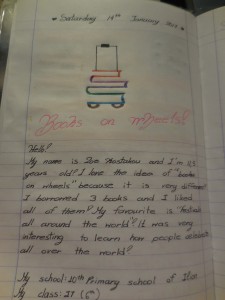 Saturday 14th January 2017
Books on wheels!
Hello!
My name is Zoe and I'm 11,5
years old! I love the idea of "books
on wheels" because it is very different!
I borrowed 3 books and I liked
all of them! My favourite is "festivals
all around the world"! It was very
interesting to learn how people celebrate
all over the world!
My school: 10th Primary school of Ilion
My class: